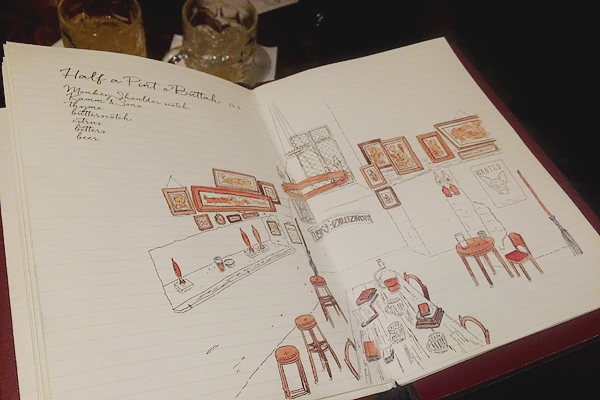 Half a Pint o'Buttah
Monkey Shoulder scotch
Kamm & Sons
thyme
butterscotch
citrus
bitters
beer
WANTED